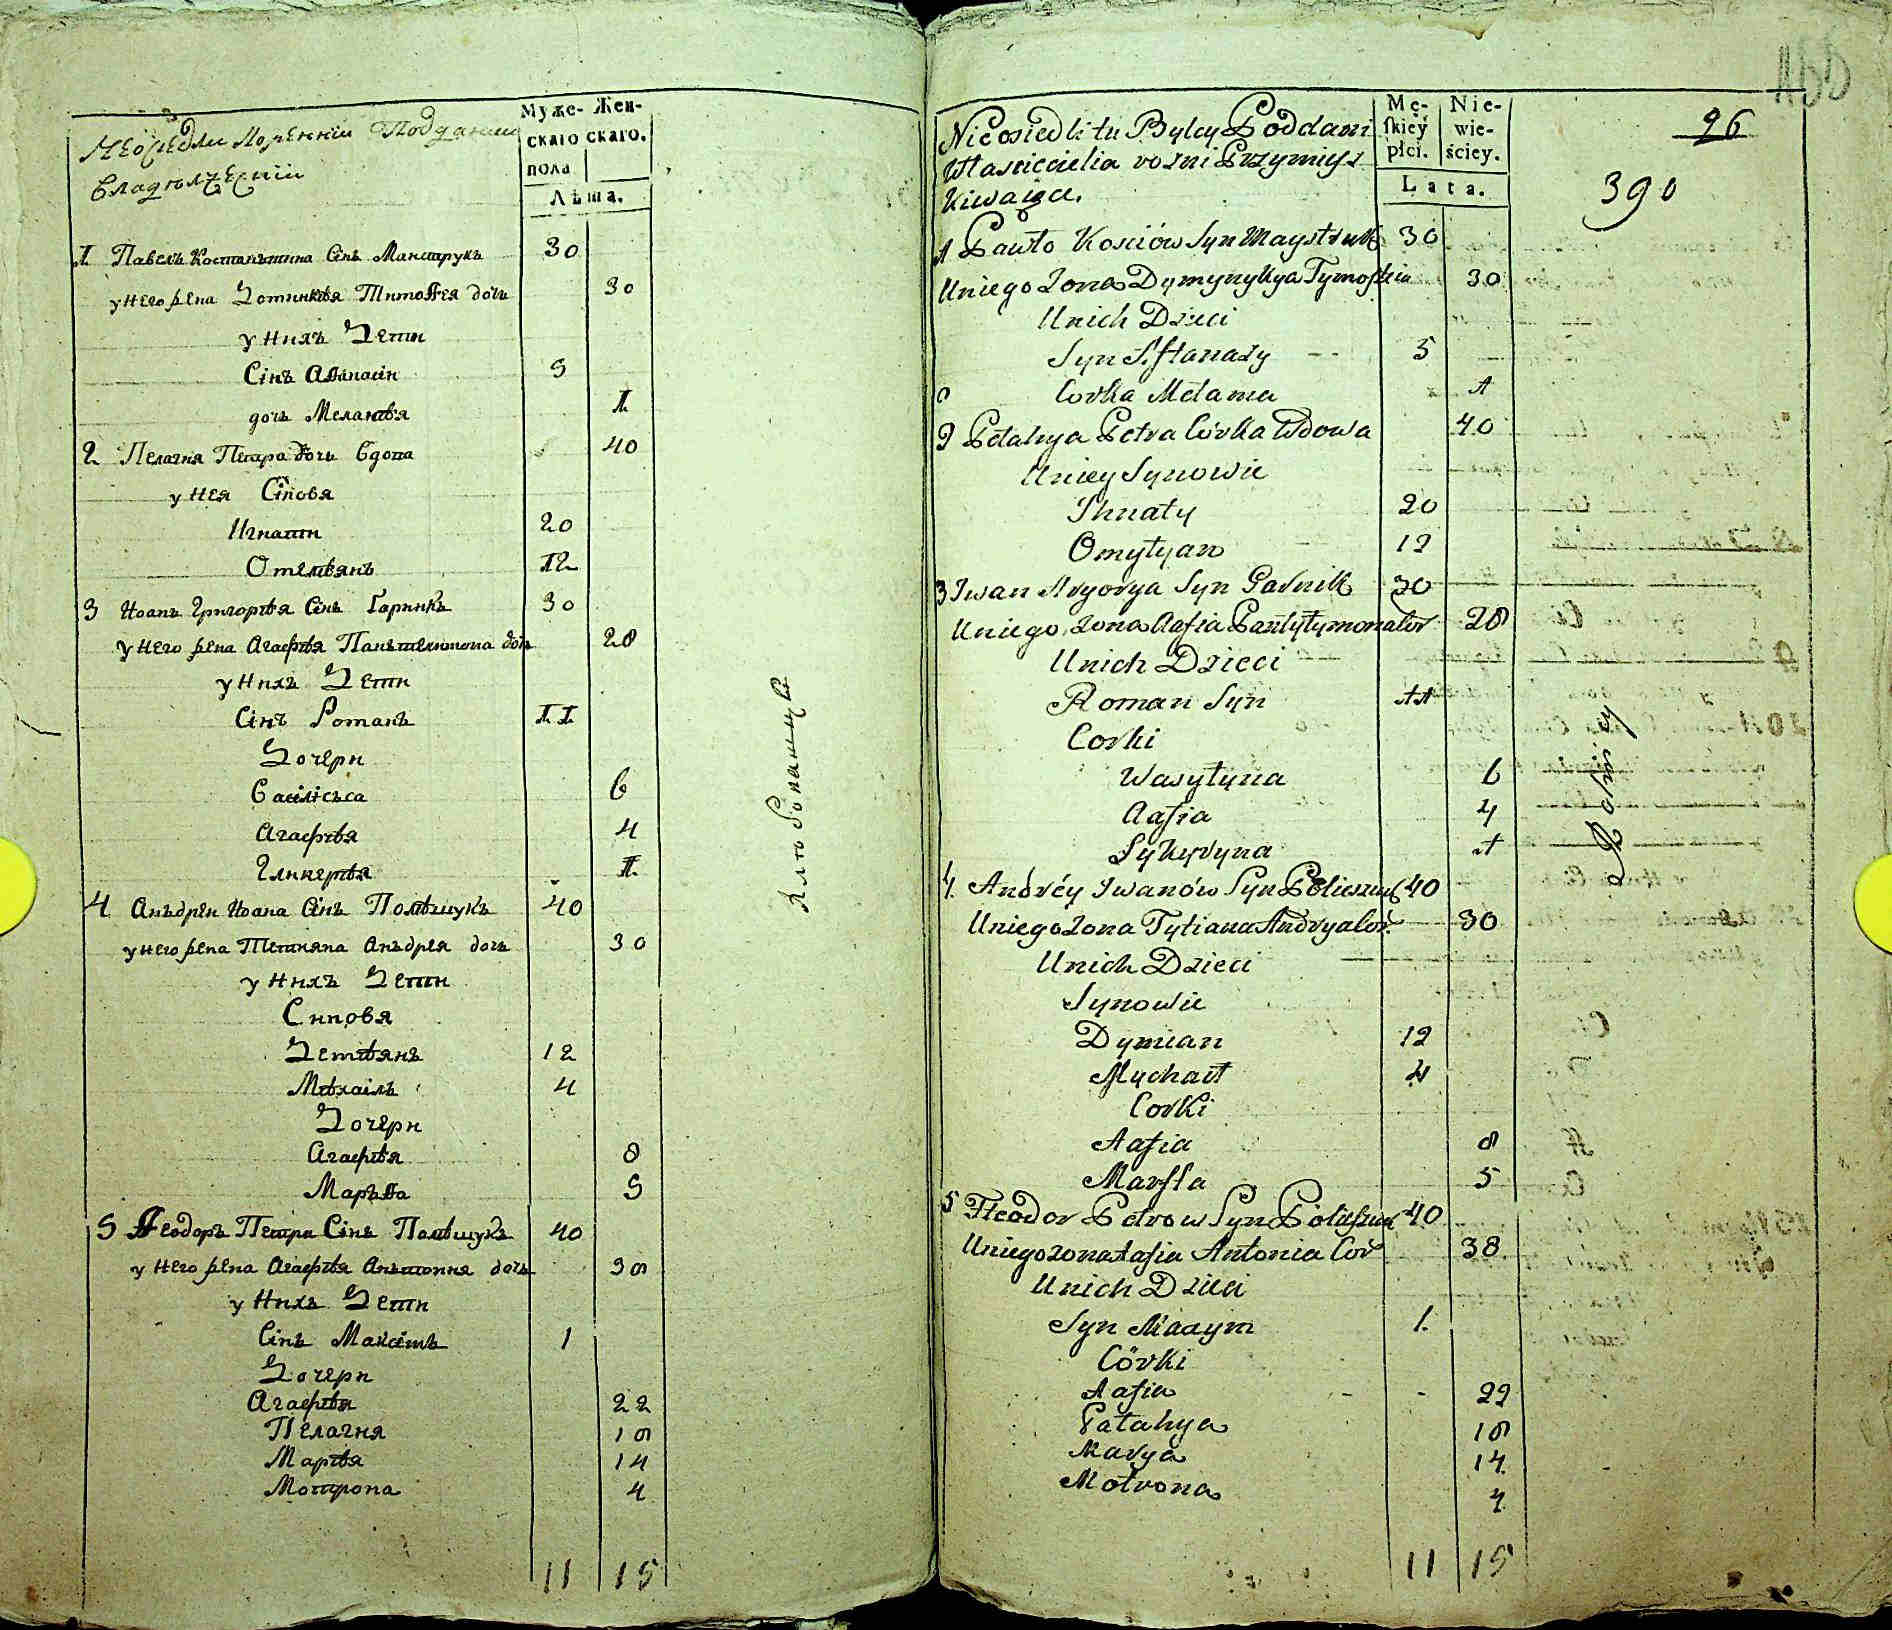 Муже- Жен-
скаго скаго.
пола
Лѣта.
1 Павелъ Костантина Сінъ Мансарукъ 30
у него жена Домникія Тимоѳея дочь 30
у нихъ Дети
Сінъ Аѳанасіи 5
дочь Меланія 1
2 Пелагия Петра дочь Вдова 40
у нея Сіновя
Игнати 20
Омелянъ 12
3 Иоанъ Григорія Сінъ Гарникъ 30
у него жена Агафія Панътелимона дочь 28
у нихъ Дети
Сінъ Романъ 11
Дочери
Василіса 6
Агафія 4
Гликерія 1
4 Анъдреи Иоана Сінъ Полѣщукъ 40
у него жена Тетияна Анъдрея дочь 30
у нихъ Дети
Синовя
Демиянъ 12
Міхаілъ 4
Дочери
Агафія 8
Маръѳа 5
5 Ѳеодоръ Петра Сінъ Полѣщукъ 40
у него жена Агафія Анътония дочь 38
у нихъ Дети
Сінъ Максімъ 1
Дочери
Агафія 22
Пелагия 18
Марія 14
Мотрона 4
11 15
Nieosiedli tu Bylcy Poddani
Własciciela
Mę- Nie-
skiey wie-
płci. ściey.
Lata.
26
390
1 Pawło Kosciów Syn Maystruk 30
U niego Zona Dymynykya Tymofteia 30
U nich Dzieci
Syn Aftanazy 5
Corka Mełania 1
2 Pełahya Petra Córka Wdowa 40
U niey Synowie
Ihnaty 20
Omyłyan 12
3 Iwan Hryorya Syn Garnik 30
U niego Zona Aafia Pantyłymona Cor 28
U nich Dzieci
Roman Syn 11
Corki
Wasyłyna 6
Aafia 4
Łykyryna 1
4. Andréy Iwanów Syn Polieszuk 40
U niego Zona Tytiana Andrya Cor. 30
U nich Dzieci
Synowie
Dymian 12
Mychaił 4
Corki
Aafia 8
Marfta 5
5 Fteodor Petrow Syn Polieszuk 40
U niego zona Aafia Antonia Cor 38
U nich Dzieci
Syn Maxym 1.
Córki
Aafia 22
Patahya 18
Marya 14
Motrona 4
11 15